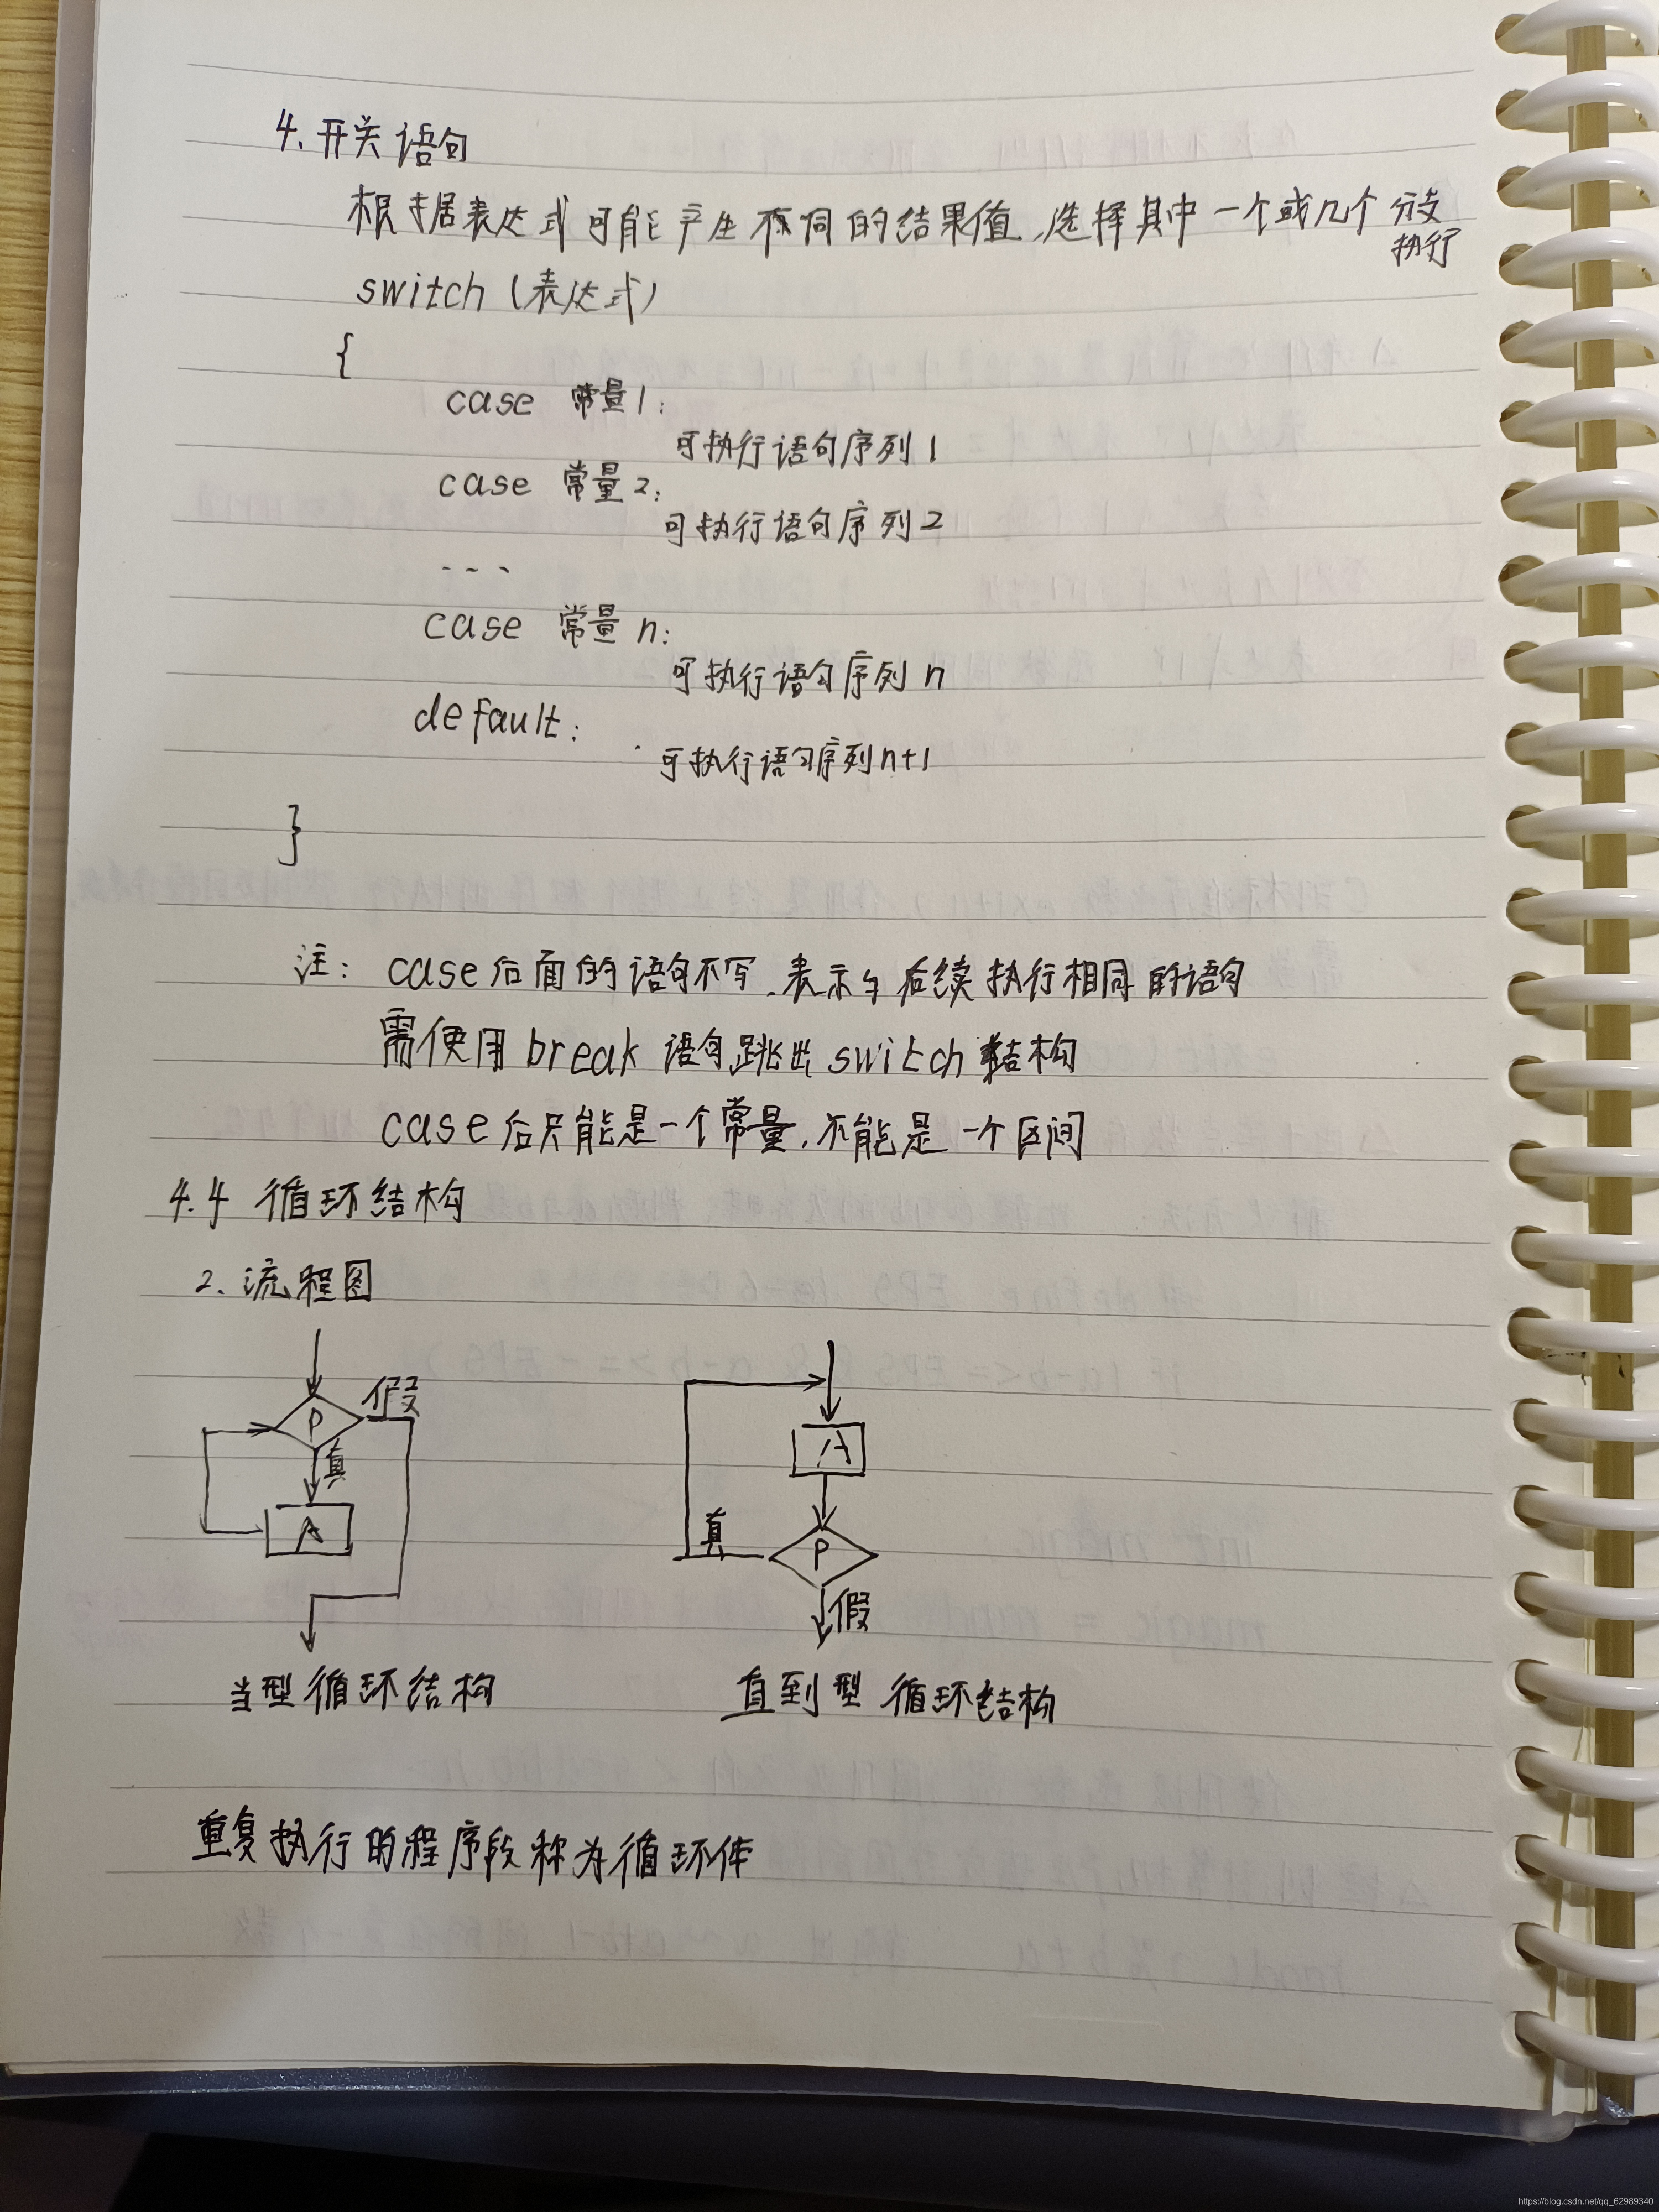 4. 开关语句
根据表达式可能产生不同的结果值,选择其中一个或几个分支
执行
switch (表达式)
{
case 常量1:
可执行语句序列1
case 常量2:
可执行语句序列2
...
case 常量n:
可执行语句序列n
default:
可执行语句序列n+1
}
注: case后面的语句不写,表示与后续执行相同的语句
需使用break语句跳出switch结构
case后只能是一个常量,不能是一个区间
4.4 循环结构
2. 流程图
P 假
真
A
当型循环结构
A
真 P
假
直到型循环结构
重复执行的程序段称为循环体
https://blog.csdn.net/qq_62989340